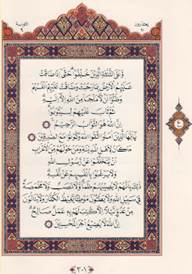 يعتذرون
التوبة
وَعَلَى الثَّلَاثَةِ الَّذِينَ خُلِّفُوا حَتَّى إِذَا ضَاقَتْ
عَلَيْهِمُ الْأَرْضُ بِمَا رَحُبَتْ وَضَاقَتْ عَلَيْهِمْ أَنْفُسُهُمْ
وَظَنُّوا أَنْ لَا مَلْجَأَ مِنَ اللَّهِ إِلَّا إِلَيْهِ
ثُمَّ تَابَ عَلَيْهِمْ لِيَتُوبُوا
إِنَّ اللَّهَ هُوَ التَّوَّابُ الرَّحِيمُ
يَا أَيُّهَا الَّذِينَ آمَنُوا اتَّقُوا اللَّهَ وَكُونُوا مَعَ الصَّادِقِينَ
مَا كَانَ لِأَهْلِ الْمَدِينَةِ وَمَنْ حَوْلَهُمْ مِنَ الْأَعْرَابِ
أَنْ يَتَخَلَّفُوا عَنْ رَسُولِ اللَّهِ
ذَلِكَ بِأَنَّهُمْ لَا يُصِيبُهُمْ ظَمَأٌ وَلَا نَصَبٌ وَلَا مَخْمَصَةٌ
فِي سَبِيلِ اللَّهِ وَلَا يَطَئُونَ مَوْطِئًا يَغِيظُ الْكُفَّارَ وَلَا يَنَالُونَ
مِنْ عَدُوٍّ نَيْلًا إِلَّا كُتِبَ لَهُمْ بِهِ عَمَلٌ صَالِحٌ
إِنَّ اللَّهَ لَا يُضِيعُ أَجْرَ الْمُحْسِنِينَ